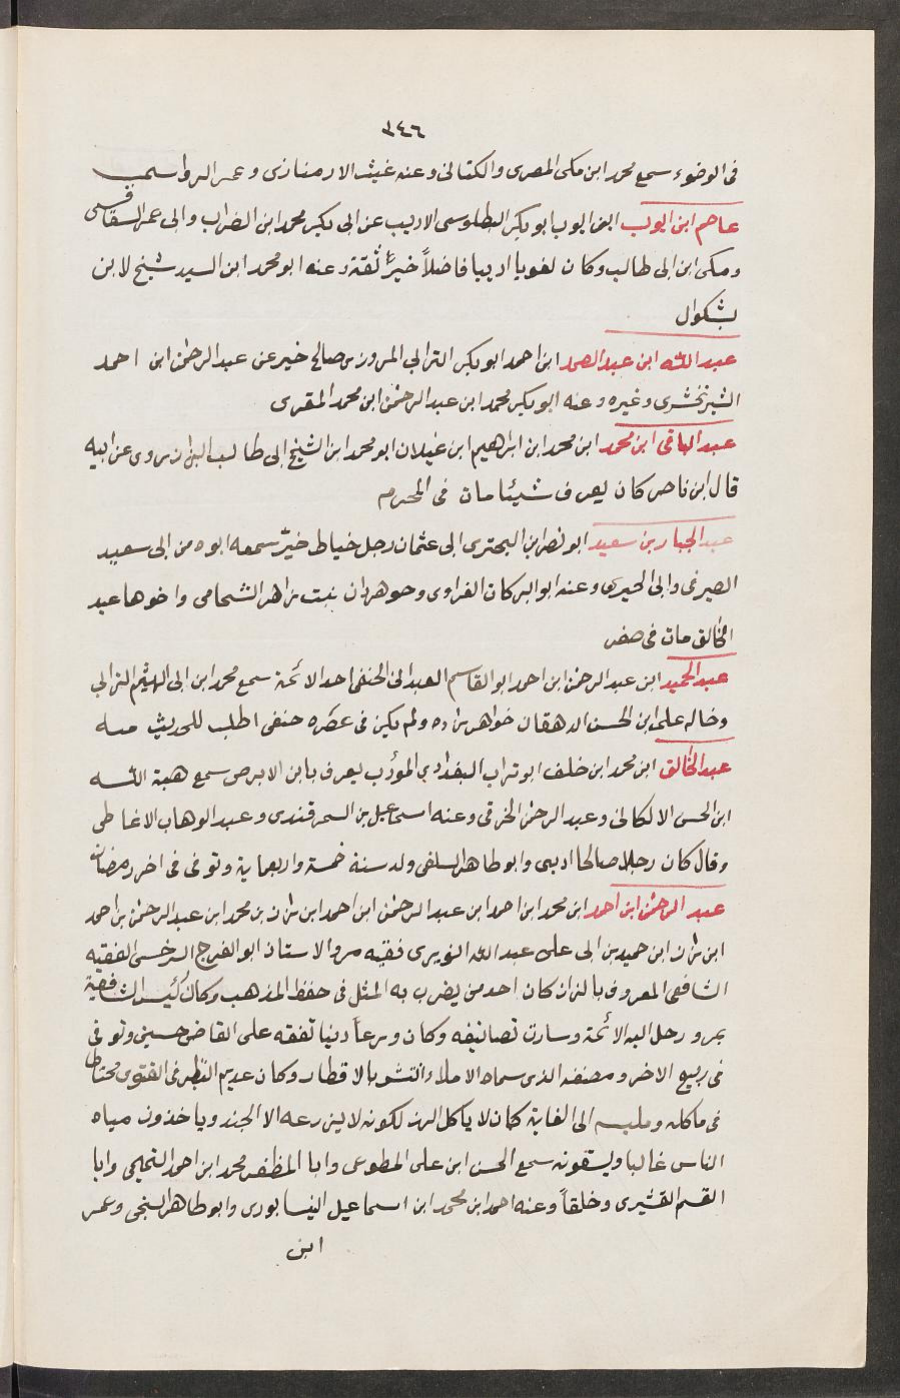 ٣٤٦
فى الوضوء سمع محمد ابن مكى المصرى والكتانى وعنه غيث الارمنازى وعمر الرواسى
عاصم ابن ايوب ابن ايوب ابو بكر البطلوسى الاديب عن ابى بكر محمد ابن الضراب وابى عمر السقاقسى
ومكى ابن ابى طالب وكان لغويا اديبا فاضلاً خيراً ثقة وعنه ابو محمد ابن السيد شيخ لابن
بشكوال
عبد الله ابن عبد الصمد ابن احمد ابو بكر الترابى المروزى صالح خير عن عبد الرحمٰن ابن احمد
الشيرنخشرى وغيره وعنه ابو بكر محمد ابن عبد الرحمٰن ابن محمد المقرى
عبد الباقى ابن محمد ابن محمد ابن ابراهيم ابن غيلان ابو محمد ابن الشيخ ابى طالب البزاز روى عن ابيه
قال ابن ناصر كان يعرف شيئا مات فى المحرم
عبد الجبار بن سعيد ابو نصر ابن البحترى ابى عثمان رجل خياط خيّر سمعه ابوه من ابى سعيد
الصيرفى وابى الحيرى وعنه ابو البركات الفراوى وجوهردان بنت زاهر الشحامى واخوها عبد
الخالق مات فى صفر
عبد الحميد ابن عبد الرحمٰن ابن احمد ابو القاسم العبدلى الحنفى احد الائمة سمع محمد ابن ابى الهيثم الترابى
وخاله على ابن الحسن الدهقان خواهر زاده ولم يكن فى عصره حنفى اطلب للحديث منه
عبد الخالق ابن محمد ابن خلف ابو تراب البغدادي المؤدب يعرف بابن الابرص سمع هبة الله
ابن الحسن الالكائى وعبد الرحمٰن الخرقى وعنه اسماعيل بن السمرقندى وعبد الوهاب الانماطى
وقال كان رجلا صالحا اديبى وابو طاهر السلفى ولد سنة خمسة واربعماية وتوفى فى اخر رمضان
عبد الرحمٰن ابن احمد ابن محمد ابن احمد ابن عبد الرحمٰن ابن احمد ابن زاز بن محمد ابن عبد الرحمٰن بن احمد
ابن زاز ابن حميد بن ابى على عبد الله النويرى فقيه مرو الاستاذ ابو الفرج السرخسى الفقيه
الشافعى المعروف بالزاز كان احد من يضرب به المثل فى حفظ المذهب وكان رئيس الشافعية
بمرو رحل اليه الائمة وسارت تصانيفه وكان ورعاً دينا تفقه على القاضى حسين وتوفى
فى ربيع الاخر ومصنفه الذى سماه الاملاء انتشر بالاقطار وكان عديم النظر فى الفتوى محتاطا
فى ماكله وملبسه الى الغاية كان لا ياكل الرز لكونه لا يزرعه الا الجند وياخذون مياه
الناس غالبا ويسقونه سمع الحسن ابن على المطوعى وابا المظفر محمد ابن احمد التميمى وابا
القسم القشيرى وخلقاً وعنه احمد ابن محمد ابن اسماعيل النيسابورى وابو طاهر السنجى وعمر
ابن